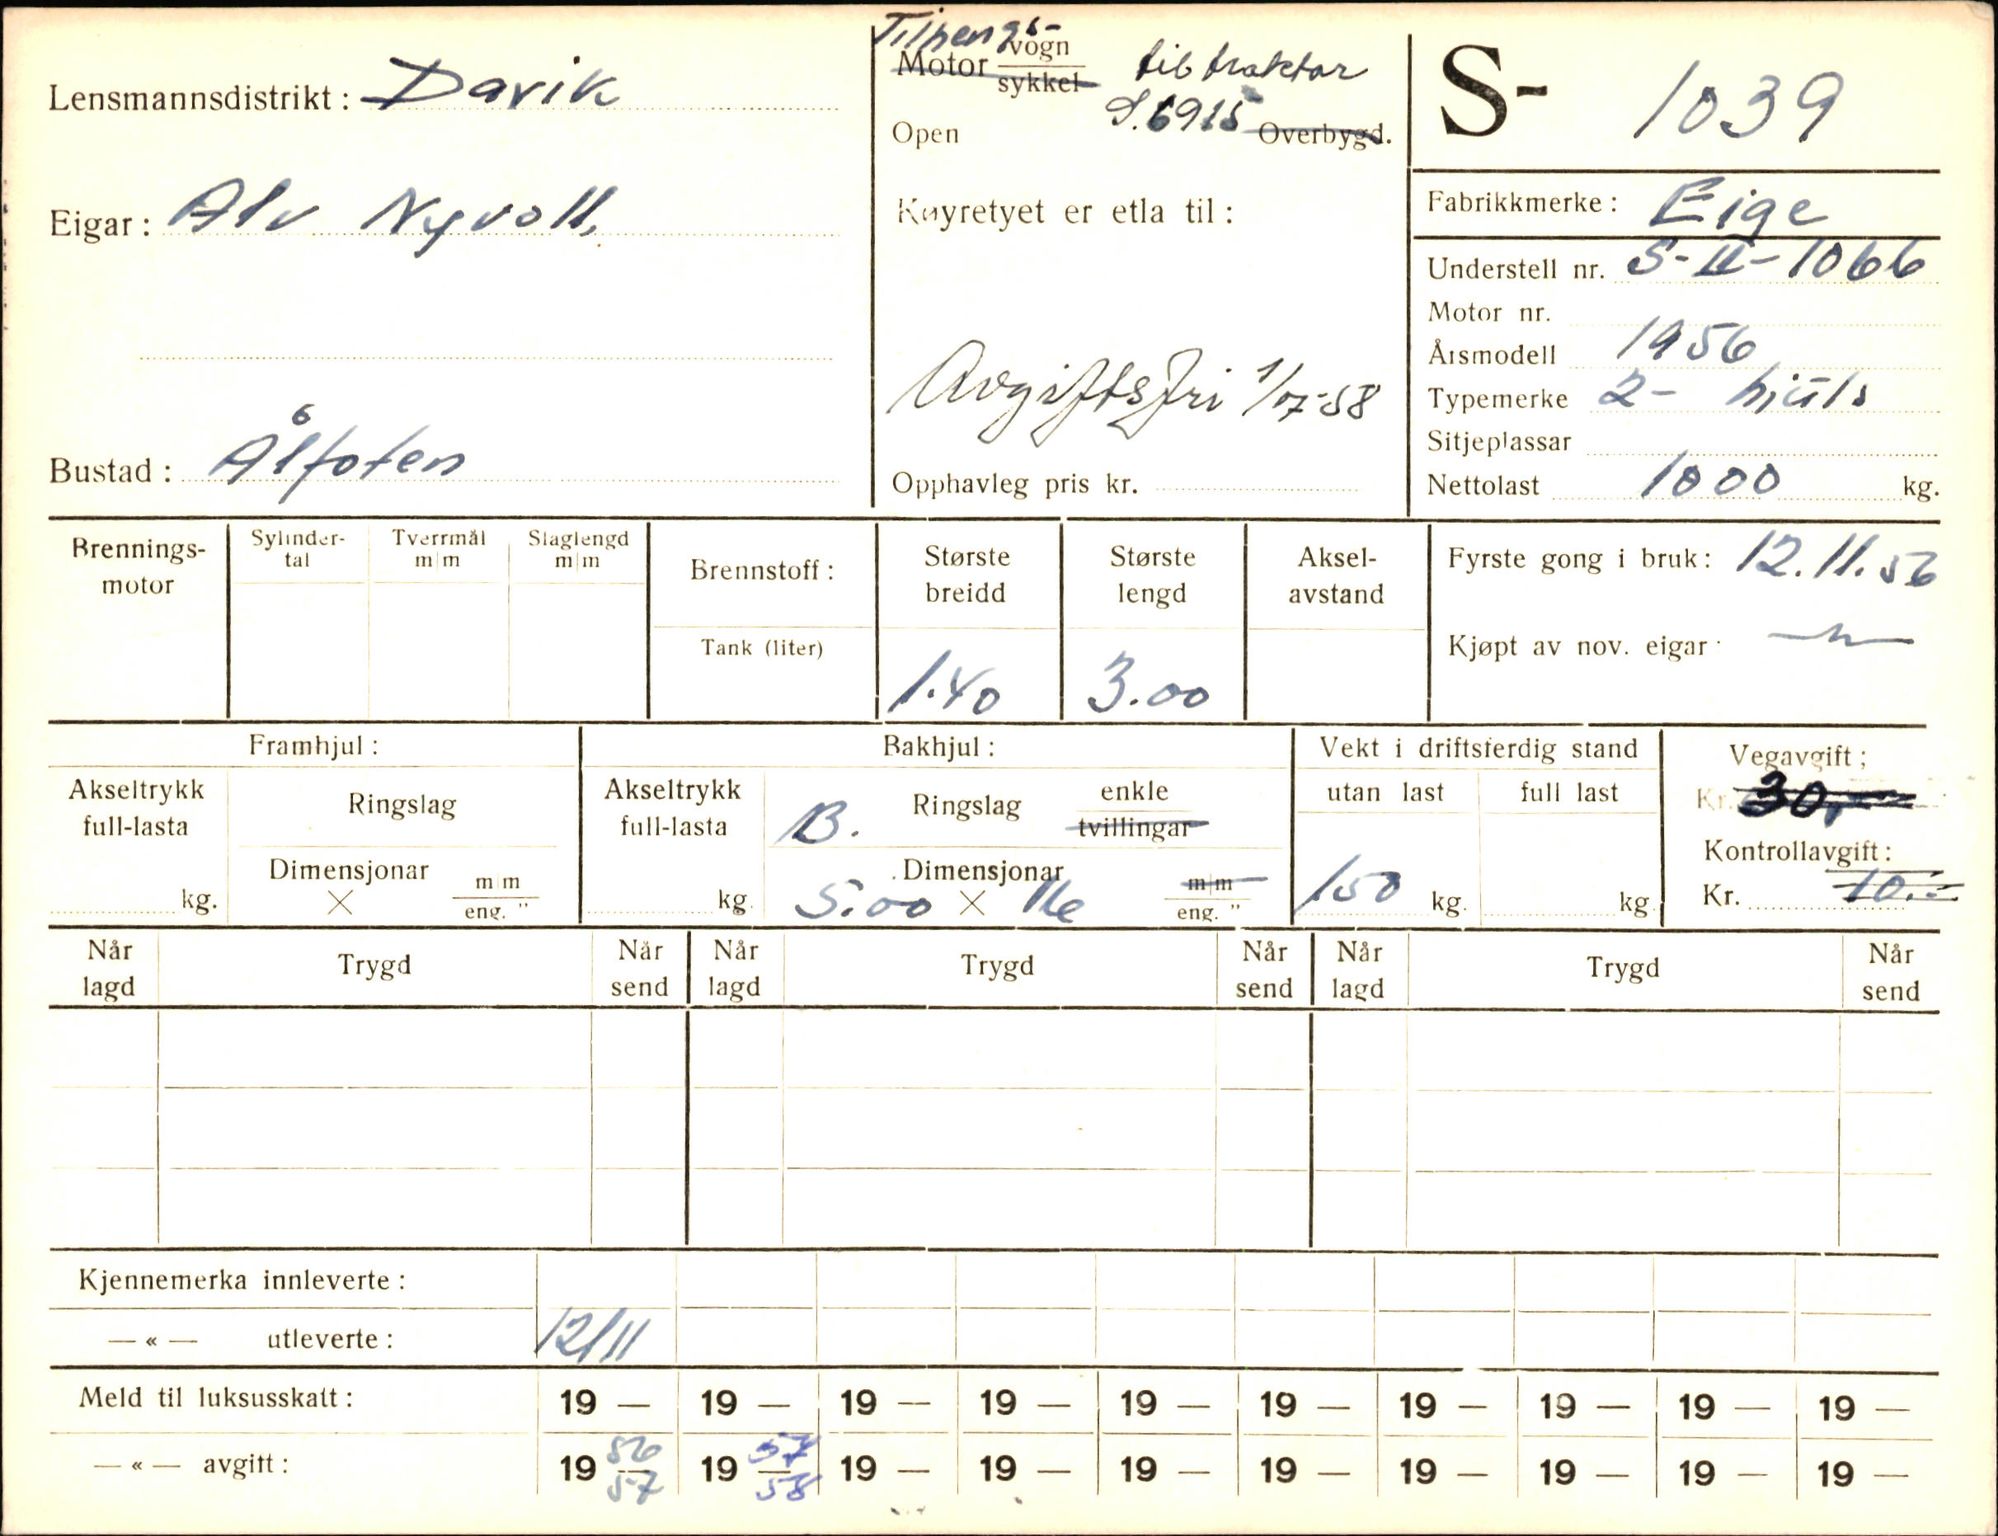 Lensmannsdistrikt: Davik
Eigar: Alv Nyvoll,
Bustad: Ålfoten
Tilhengs-
Motor vogn
sykkel
til traktor
S.6915
Open Overbygd.
Køyretyet er etla til:
Avgiftsfri 1/7-58
Opphavleg pris kr.
S- 1039
Fabrikkmerke: Eige
Understell nr. S-II-1066
Motor nr.
Årsmodell 1956
Typemerke 2- hjuls
Sitjeplassar
Nettolast 1000 kg.
Brennings-
motor
Sylinder-
tal
Tverrmål
m|m
Slaglengd
m|m
Brennstoff:
Tank (liter)
Største
breidd
1.40
Største
lengd
3.00
Aksel-
avstand
Fyrste gong i bruk: 12.11.56
Kjøpt av nov. eigar:
Framhjul:
Akseltrykk
full-lasta
kg.
Ringslag
Dimensjonar
× m|m
eng. "
Bakhjul:
Akseltrykk
full-lasta
kg.
B. Ringslag enkle
tvillingar
Dimensjonar
5.00 × 16 m|m
eng. "
Vekt i driftsferdig stand
utan last full last
150 kg. kg
Vegavgift:
Kr. 30,
Kontrollavgift:
Kr. 10.-
Når
lagd
Trygd
Når
send
Når
lagd
Trygd
Når
send
Når
lagd
Trygd
Når
send
Kjennemerka innleverte:
— « — utleverte: 12/11
Meld til luksusskatt: 19 — 19 — 19 — 19 — 19 — 19 — 19 — 19 — 19 — 19 —
— « — avgift: 19 56/57 19 57/58 19 — 19 — 19 — 19 — 19 — 19 — 19 — 19 —